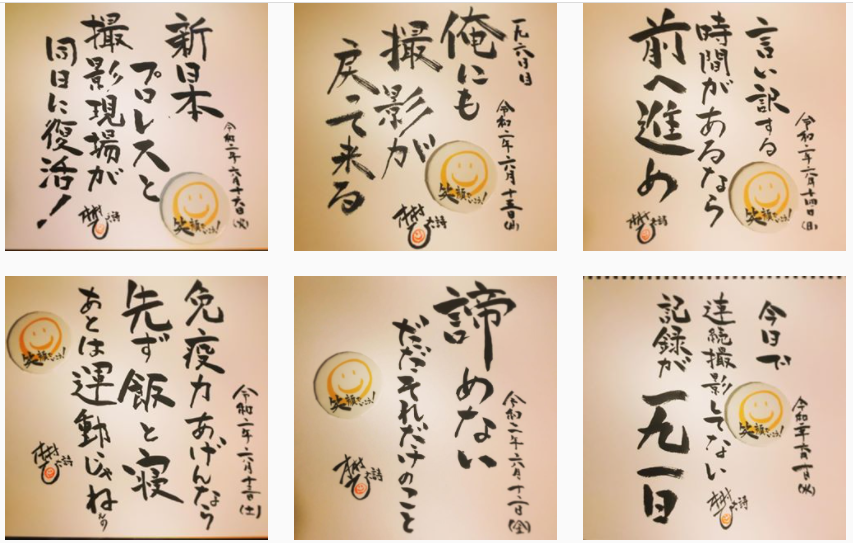 令和二年六月十六日(火)
新日本
プロレスと
撮影現場が
同日に復活!
一九六日目
令和二年六月十五日(月)
俺にも
撮影が
戻って来る
令和二年六月十四日(日)
言い訳する
時間があるなら
前へ進め
令和二年六月十三日(土)
免疫力あげんなら
先ず飯と寝
あとは運動じゃね
令和二年六月十二日(金)
諦めない
ただそれだけのこと
令和二年六月十日(水)
今日で
連続撮影してない
記録が
一九一日